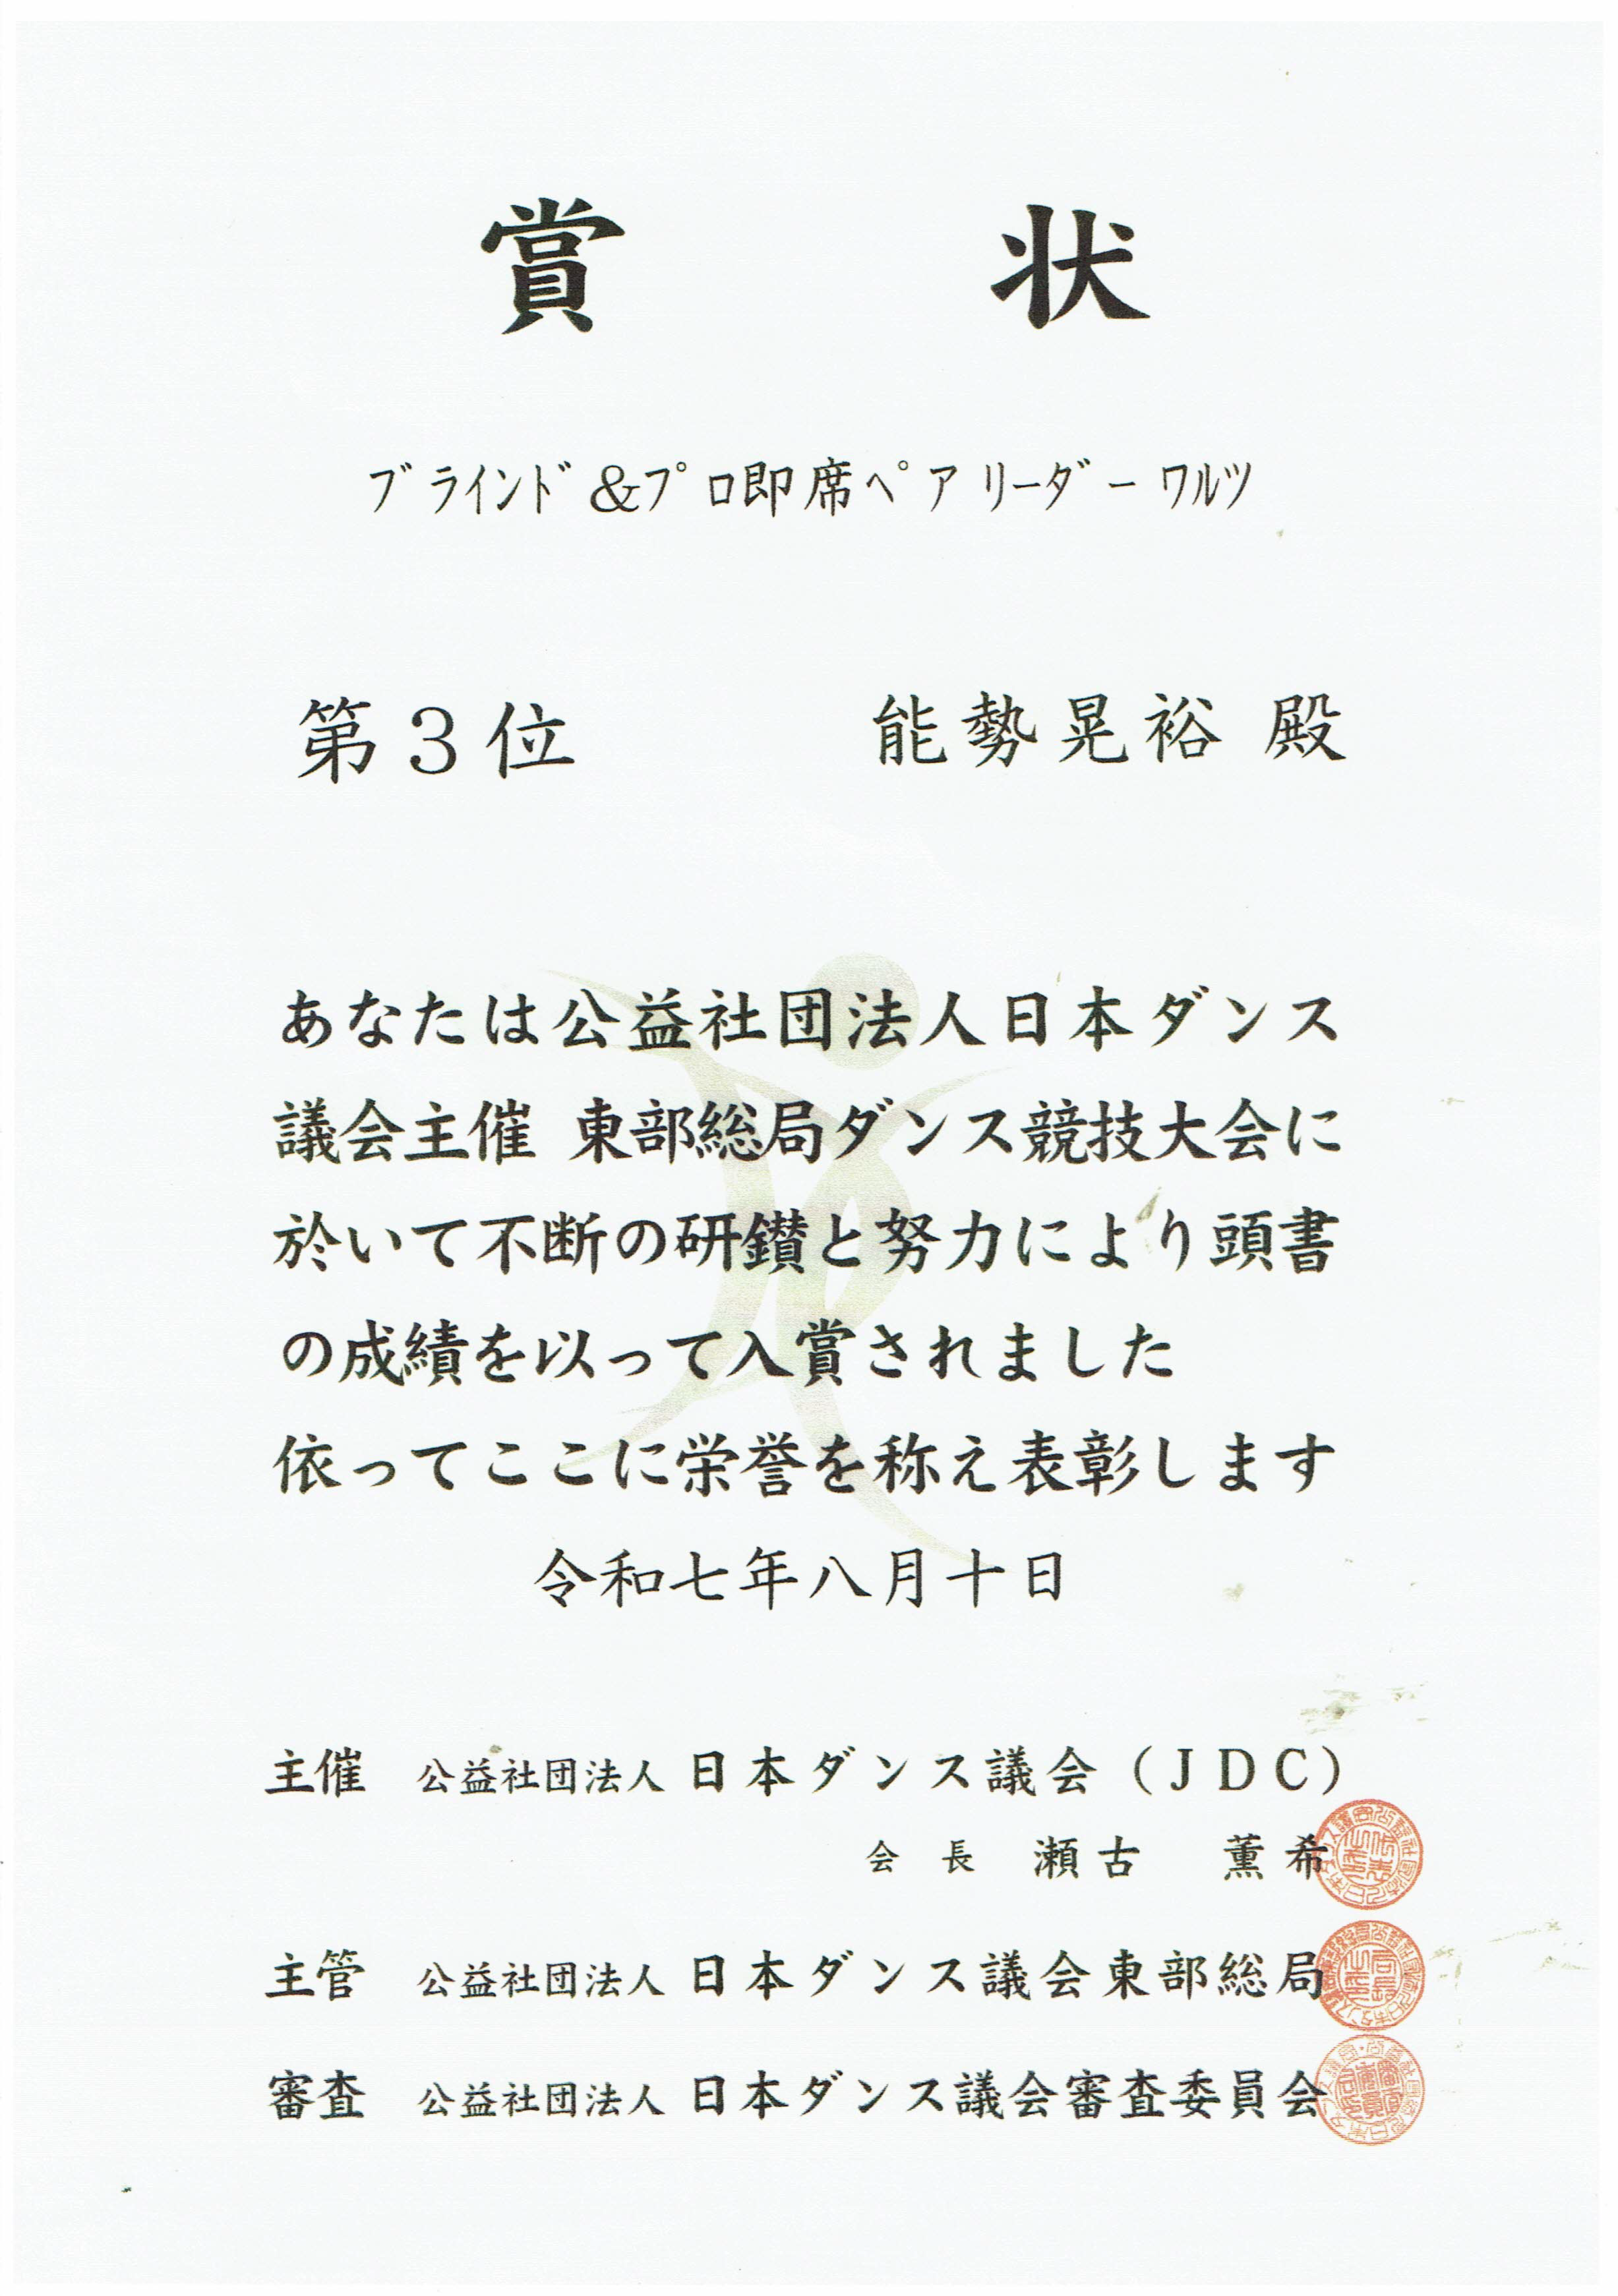 賞 状
ﾌﾞﾗｲﾝﾄﾞ&ﾌﾟﾛ即席ﾍﾟｱ ﾘｰﾀﾞｰ ﾜﾙﾂ
第３位 能勢晃裕 殿
あなたは公益社団法人日本ダンス
議会主催 東部総局ダンス競技大会に
於いて不断の研鑽と努力により頭書
の成績を以って入賞されました
依ってここに栄誉を称え表彰します
令和七年八月十日
主催 公益社団法人 日本ダンス議会（ＪＤＣ）
会長 瀬古 薫希
主管 公益社団法人 日本ダンス議会東部総局
審査 公益社団法人 日本ダンス議会審査委員会